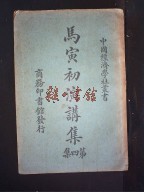 中國經濟學社叢書
馬寅初演講集
第四集
商務印書館發行